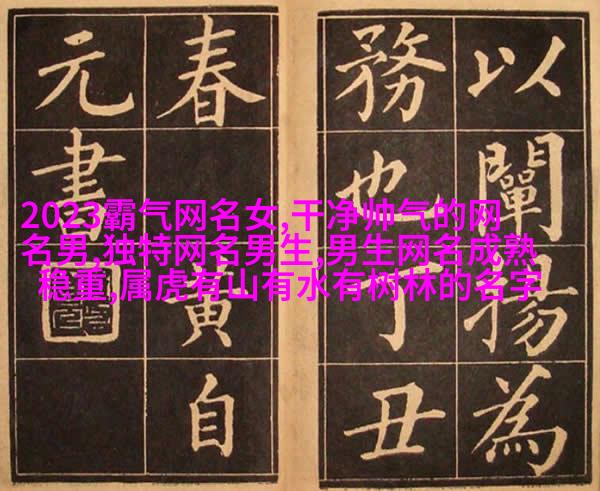 以闡揚為
務也丁丑
春黃自
元書
2023霸气网名女,干净帅气的网
名男,独特网名男生,男生网名成熟
稳重,属虎有山有水有树林的名字